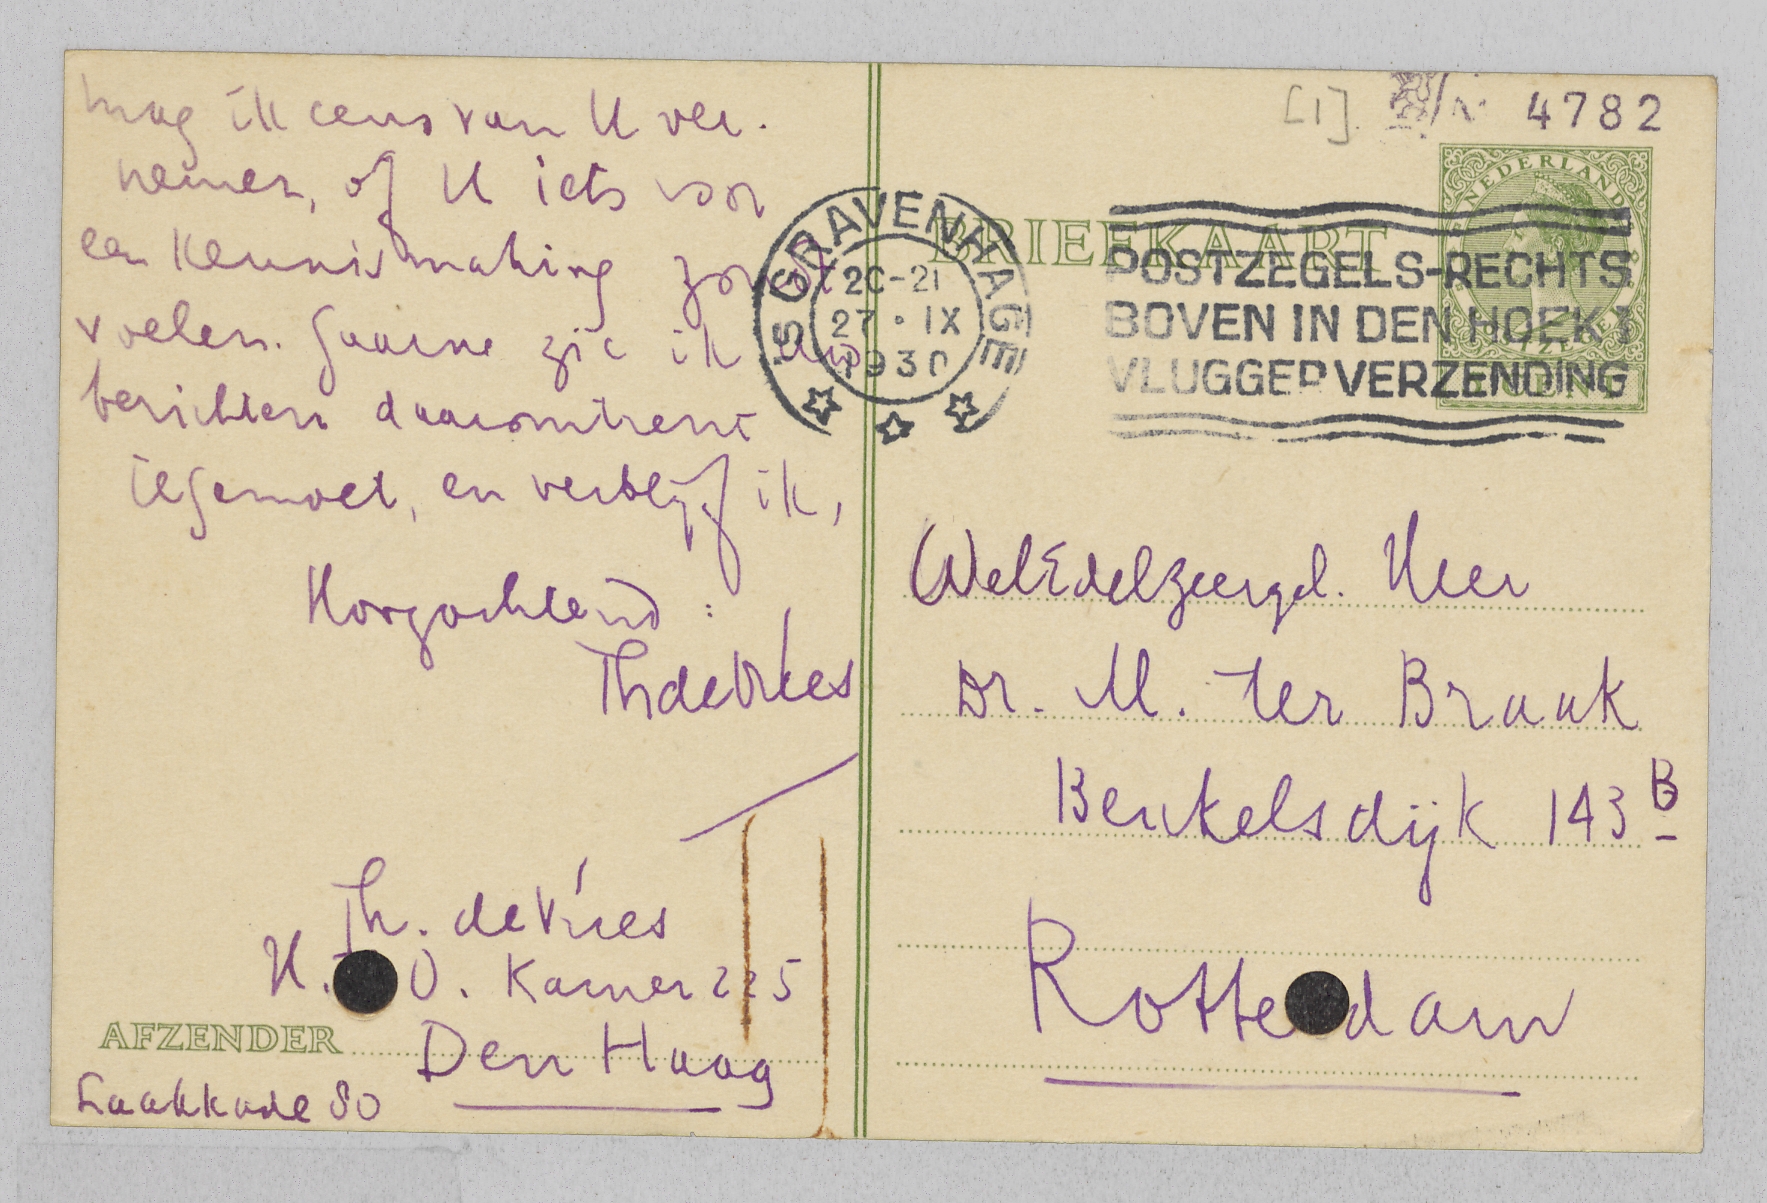 mag ik eens van U ver-
nemen, of U iets voor
een kennismaking zoudt
voelen. Gaarne zie ik Uw
berichten daaromtrent
tegemoet, en verblijf ik,
Hoogachtend:
ThdeVries
Th. de Vries
H. O. Kamer 225
AFZENDER Den Haag
Laakkade 80
[1] 4782
NEDERLAND
BRIEFKAART
'S GRAVENHAGE
20-21
27 · IX
1930
POSTZEGELS-RECHTS
BOVEN IN DEN HOEK!
VLUGGER VERZENDING
CENT
WelEdelZeergel. Heer
Dr. M. ter Braak
Beukelsdijk 143 B
Rotterdam